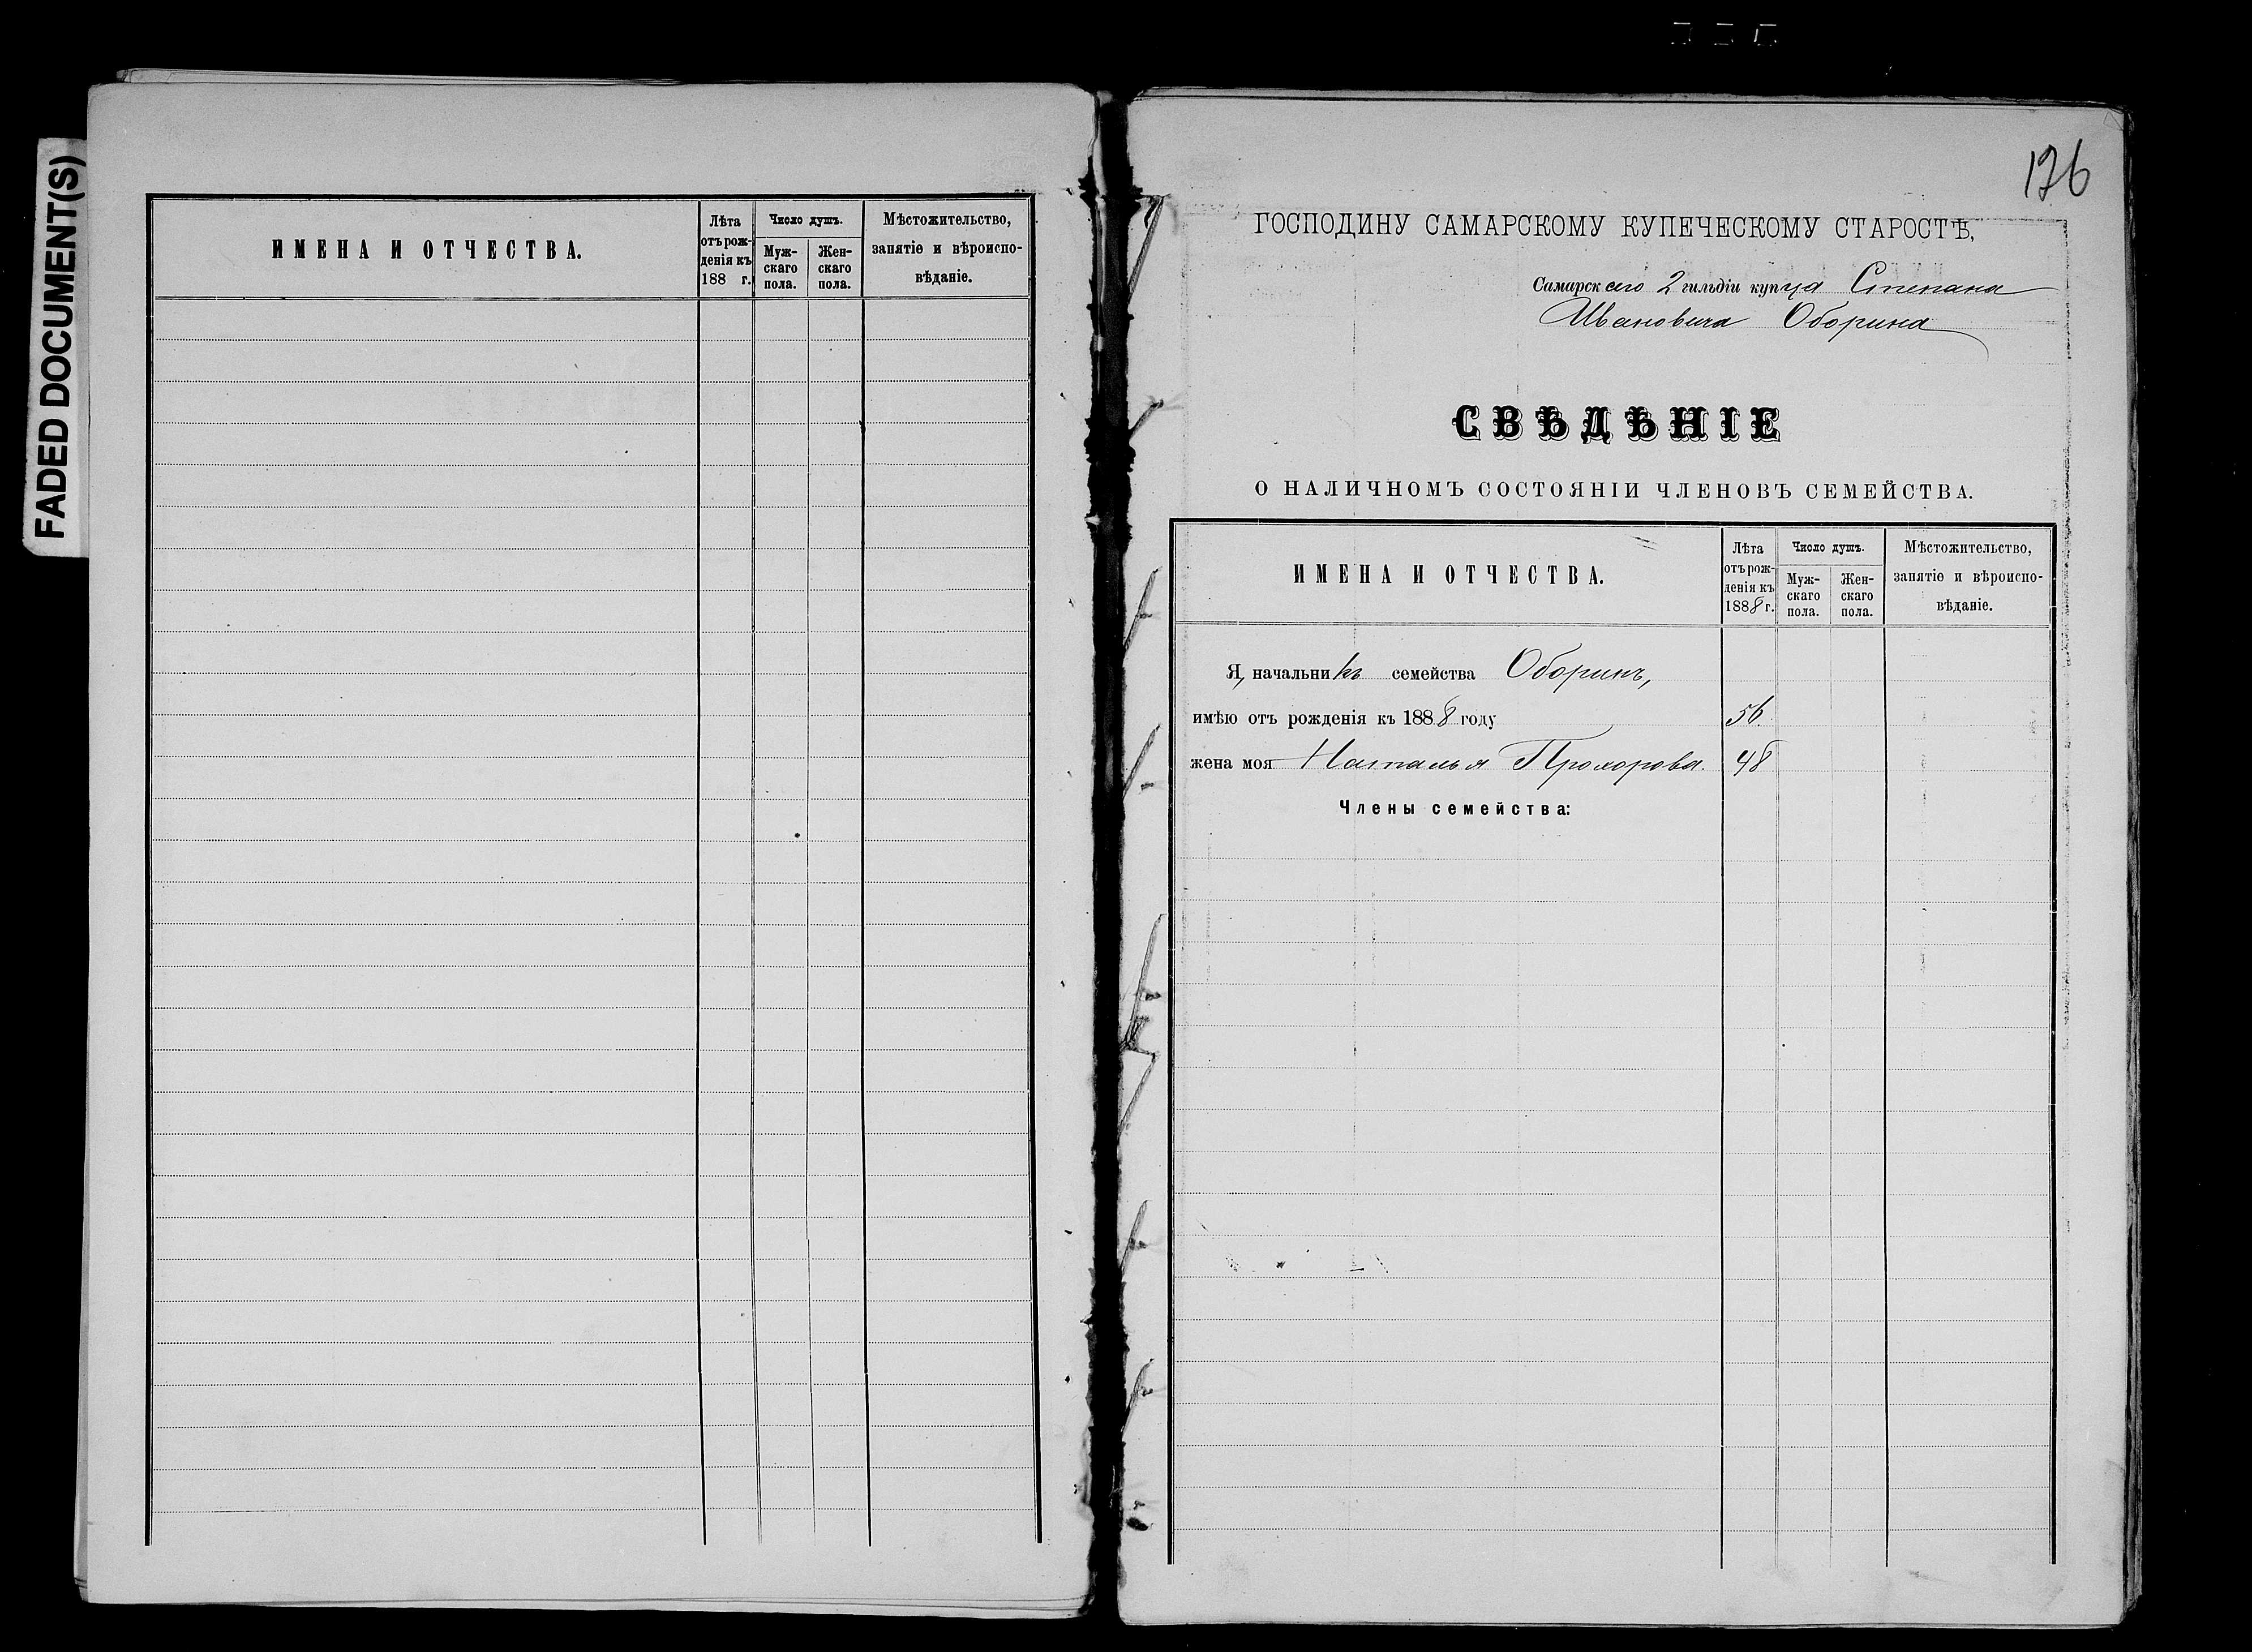 FADED DOCUMENT(S)
ИМЕНА И ОТЧЕСТВА.
Лѣта
отъ рож-
денія къ
188 г.
Число душъ.
Муж-
скаго
пола.
Жен-
скаго
пола.
Мѣстожительство,
занятіе и вѣроиспо-
вѣданіе.
176
ГОСПОДИНУ САМАРСКОМУ КУПЕЧЕСКОМУ СТАРОСТѢ,
Самарскаго 2 гильдіи купца Степана
Ивановича Оборина
СВѢДѢНІЕ
О НАЛИЧНОМЪ СОСТОЯНІИ ЧЛЕНОВЪ СЕМЕЙСТВА.
ИМЕНА И ОТЧЕСТВА.
Лѣта
отъ рож-
денія къ
1888 г.
Число душъ.
Муж-
скаго
пола.
Жен-
скаго
пола.
Мѣстожительство,
занятіе и вѣроиспо-
вѣданіе.
Я, начальникъ семейства Оборинъ,
имѣю отъ рожденія къ 1888 году 56.
жена моя Наталья Прохорова. 48
Члены семейства: